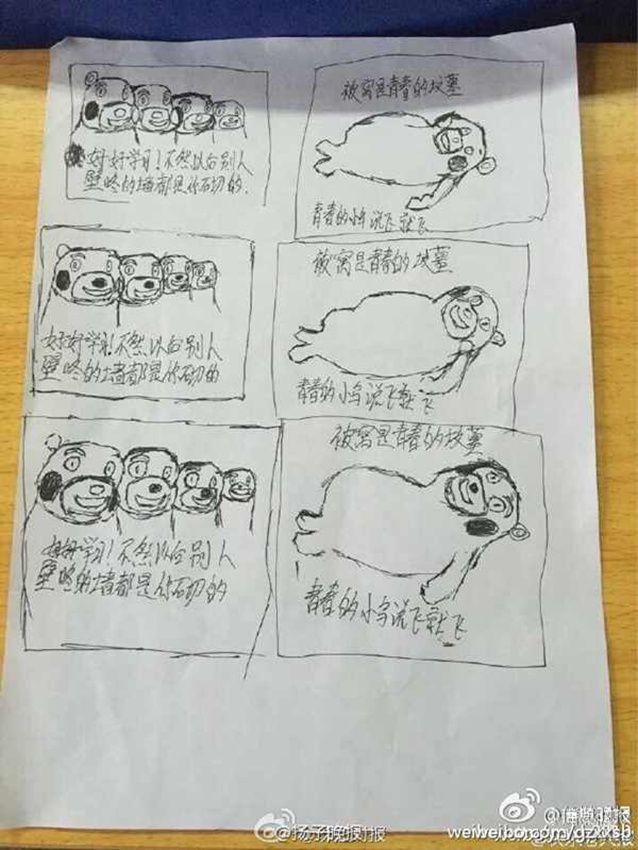 好好学习!不然以后别人
壁咚的墙都是你砌的.
被窝是青春的坟墓
青春的小鸟说飞就飞
好好学习!不然以后别人
壁咚的墙都是你砌的
被窝是青春的坟墓
青春的小鸟说飞就飞
好好学习!不然以后别人
壁咚的墙都是你砌的
被窝是青春的坟墓
青春的小鸟说飞就飞
@扬子晚报
weiweibo.com/gzxxsb